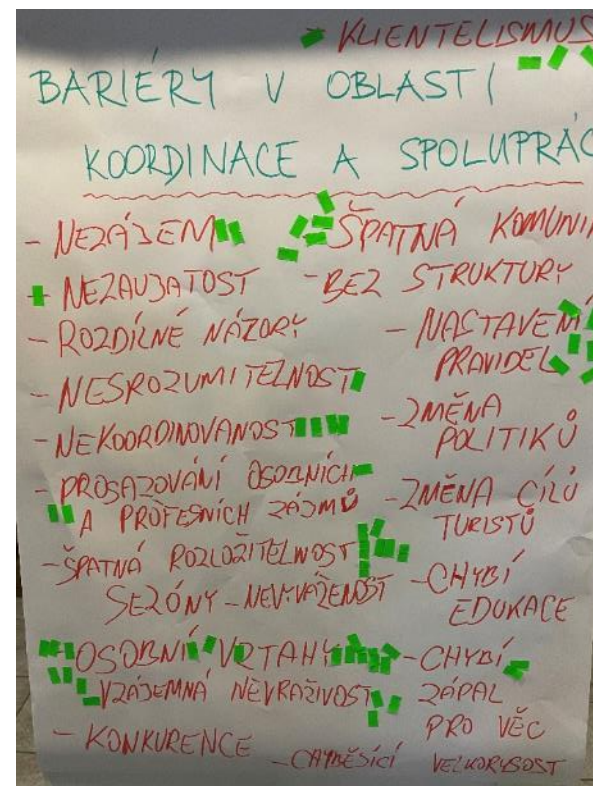 KLIENTELISMUS
BARIÉRY V OBLASTI
KOORDINACE A SPOLUPRÁC
- NEZÁJEM
- NEZAUJATOST
- ROZDÍLNÉ NÁZORY
- NESROZUMITELNOST
- NEKOORDINOVANOST
- PROSAZOVÁNÍ OSOBNÍCH
A PROFESNÍCH ZÁJMŮ
- ŠPATNÁ ROZLOŽITELNOST
SEZÓNY - NEVYVÁŽENOST
- OSOBNÍ VZTAHY
VZÁJEMNÁ NEVRAŽIVOST
- KONKURENCE
ŠPATNÁ KOMUNI
- BEZ STRUKTURY
- NASTAVENÍ
PRAVIDEL
- ZMĚNA
POLITIKŮ
- ZMĚNA CÍLŮ
TURISTŮ
- CHYBÍ
EDUKACE
- CHYBÍ
ZÁPAL
PRO VĚC
- CHYBĚJÍCÍ VELKORYSOST